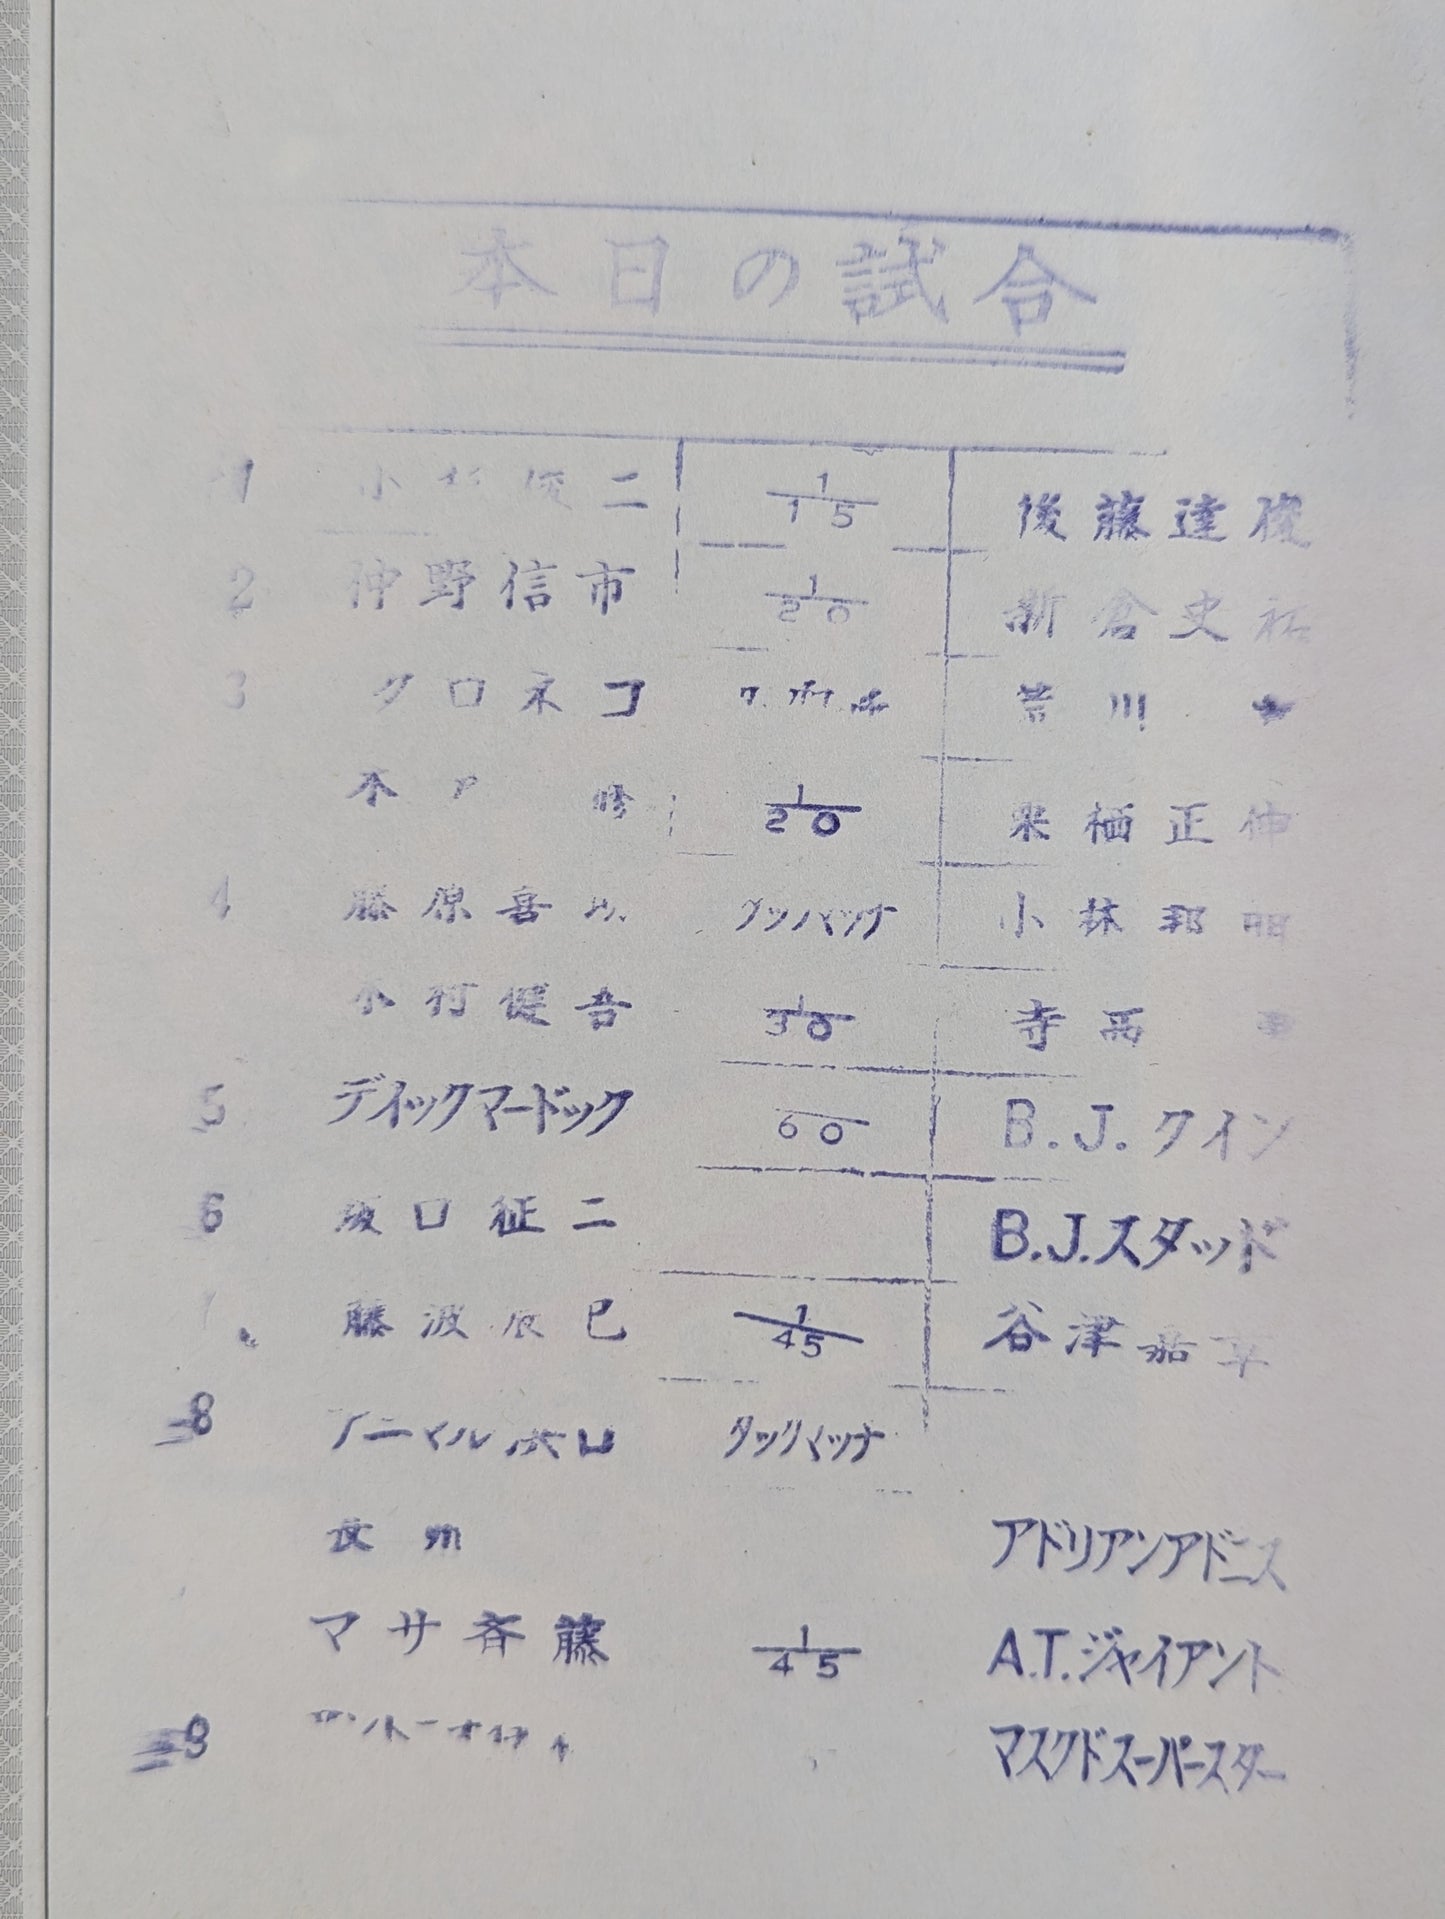 本日の試合
1 小杉俊二 1/15 後藤達俊
2 仲野信市 1/20 新倉史祐
3 クロネコ 荒川
木戸修 1/20 栗栖正伸
4 藤原喜 タッグマッチ 小林邦昭
木村健吾 1/30 寺西
5 ディックマードック 60 B.J.クイン
6 坂口征二 B.J.スタッド
藤波辰巳 1/45 谷津嘉章
8 アニマル浜口 タッグマッチ
長州 アドリアンアドニス
マサ斉藤 1/45 A.T.ジャイアント
9 マスクドスーパースター